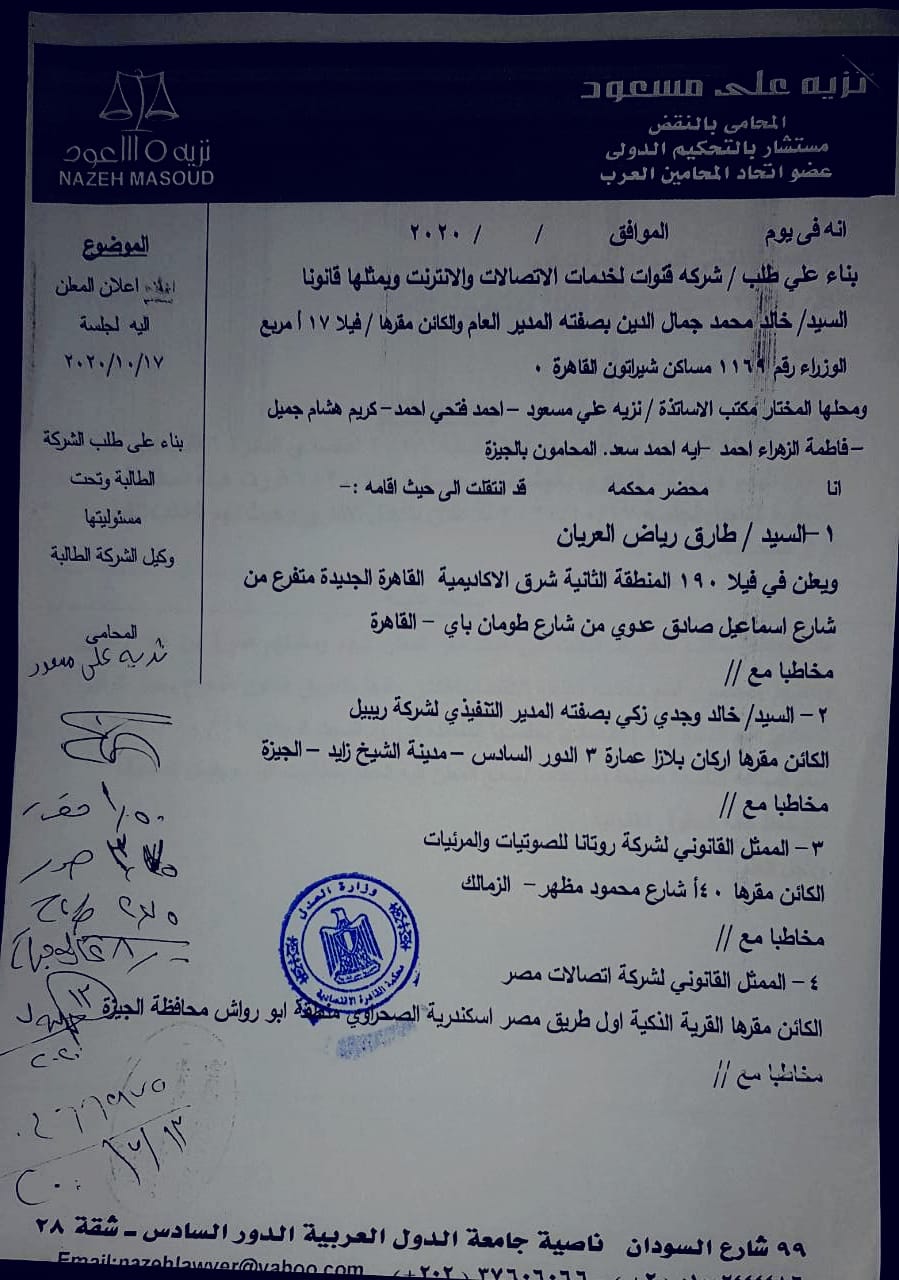 نزيه على مسعود
المحامى بالنقض
مستشار بالتحكيم الدولى
عضو اتحاد المحامين العرب
NAZEH MASOUD
انه فى يوم الموافق / / ٢٠٢٠
بناء علي طلب / شركه قنوات لخدمات الاتصالات والانترنت ويمثلها قانونا
السيد/ خالد محمد جمال الدين بصفته المدير العام والكائن مقرها / فيلا ١٧ أ مربع
الوزراء رقم ١١٦٩ مساكن شيراتون القاهرة ٠
ومحلها المختار مكتب الاساتذة / نزيه علي مسعود –احمد فتحي احمد– كريم هشام جميل
–فاطمة الزهراء احمد –ايه احمد سعد. المحامون بالجيزة
انا محضر محكمه قد انتقلت الى حيث اقامه :–
١–السيد / طارق رياض العريان
ويعلن في فيلا ١٩٠ المنطقة الثانية شرق الاكاديمية القاهرة الجديدة متفرع من
شارع اسماعيل صادق عدوي من شارع طومان باي – القاهرة
مخاطبا مع //
٢– السيد/ خالد وجدي زكي بصفته المدير التنفيذي لشركة ريبيل
الكائن مقرها اركان بلازا عمارة ٣ الدور السادس – مدينة الشيخ زايد – الجيزة
مخاطبا مع //
٣– الممثل القانوني لشركة روتانا للصوتيات والمرئيات
الكائن مقرها ٤٠أ شارع محمود مظهر – الزمالك
مخاطبا مع //
٤ – الممثل القانوني لشركة اتصالات مصر
الكائن مقرها القرية الذكية اول طريق مصر اسكندرية الصحراوي منطقة ابو رواش محافظة الجيزة
مخاطبا مع //
الموضوع
اعلان المعلن
اليه لجلسة
٢٠٢٠/١٠/١٧
بناء على طلب الشركة
الطالبة وتحت
مسئوليتها
وكيل الشركة الطالبة
المحامى
نزيه على مسعود
وزارة العدل
محكمة القاهرة الاقتصادية
٩٩ شارع السودان ناصية جامعة الدول العربية الدور السادس ــ شقة ٢٨
Email:nazehlawyer@yahoo.com (+٢٠٢) ٣٧٦٠٦٠٦٦